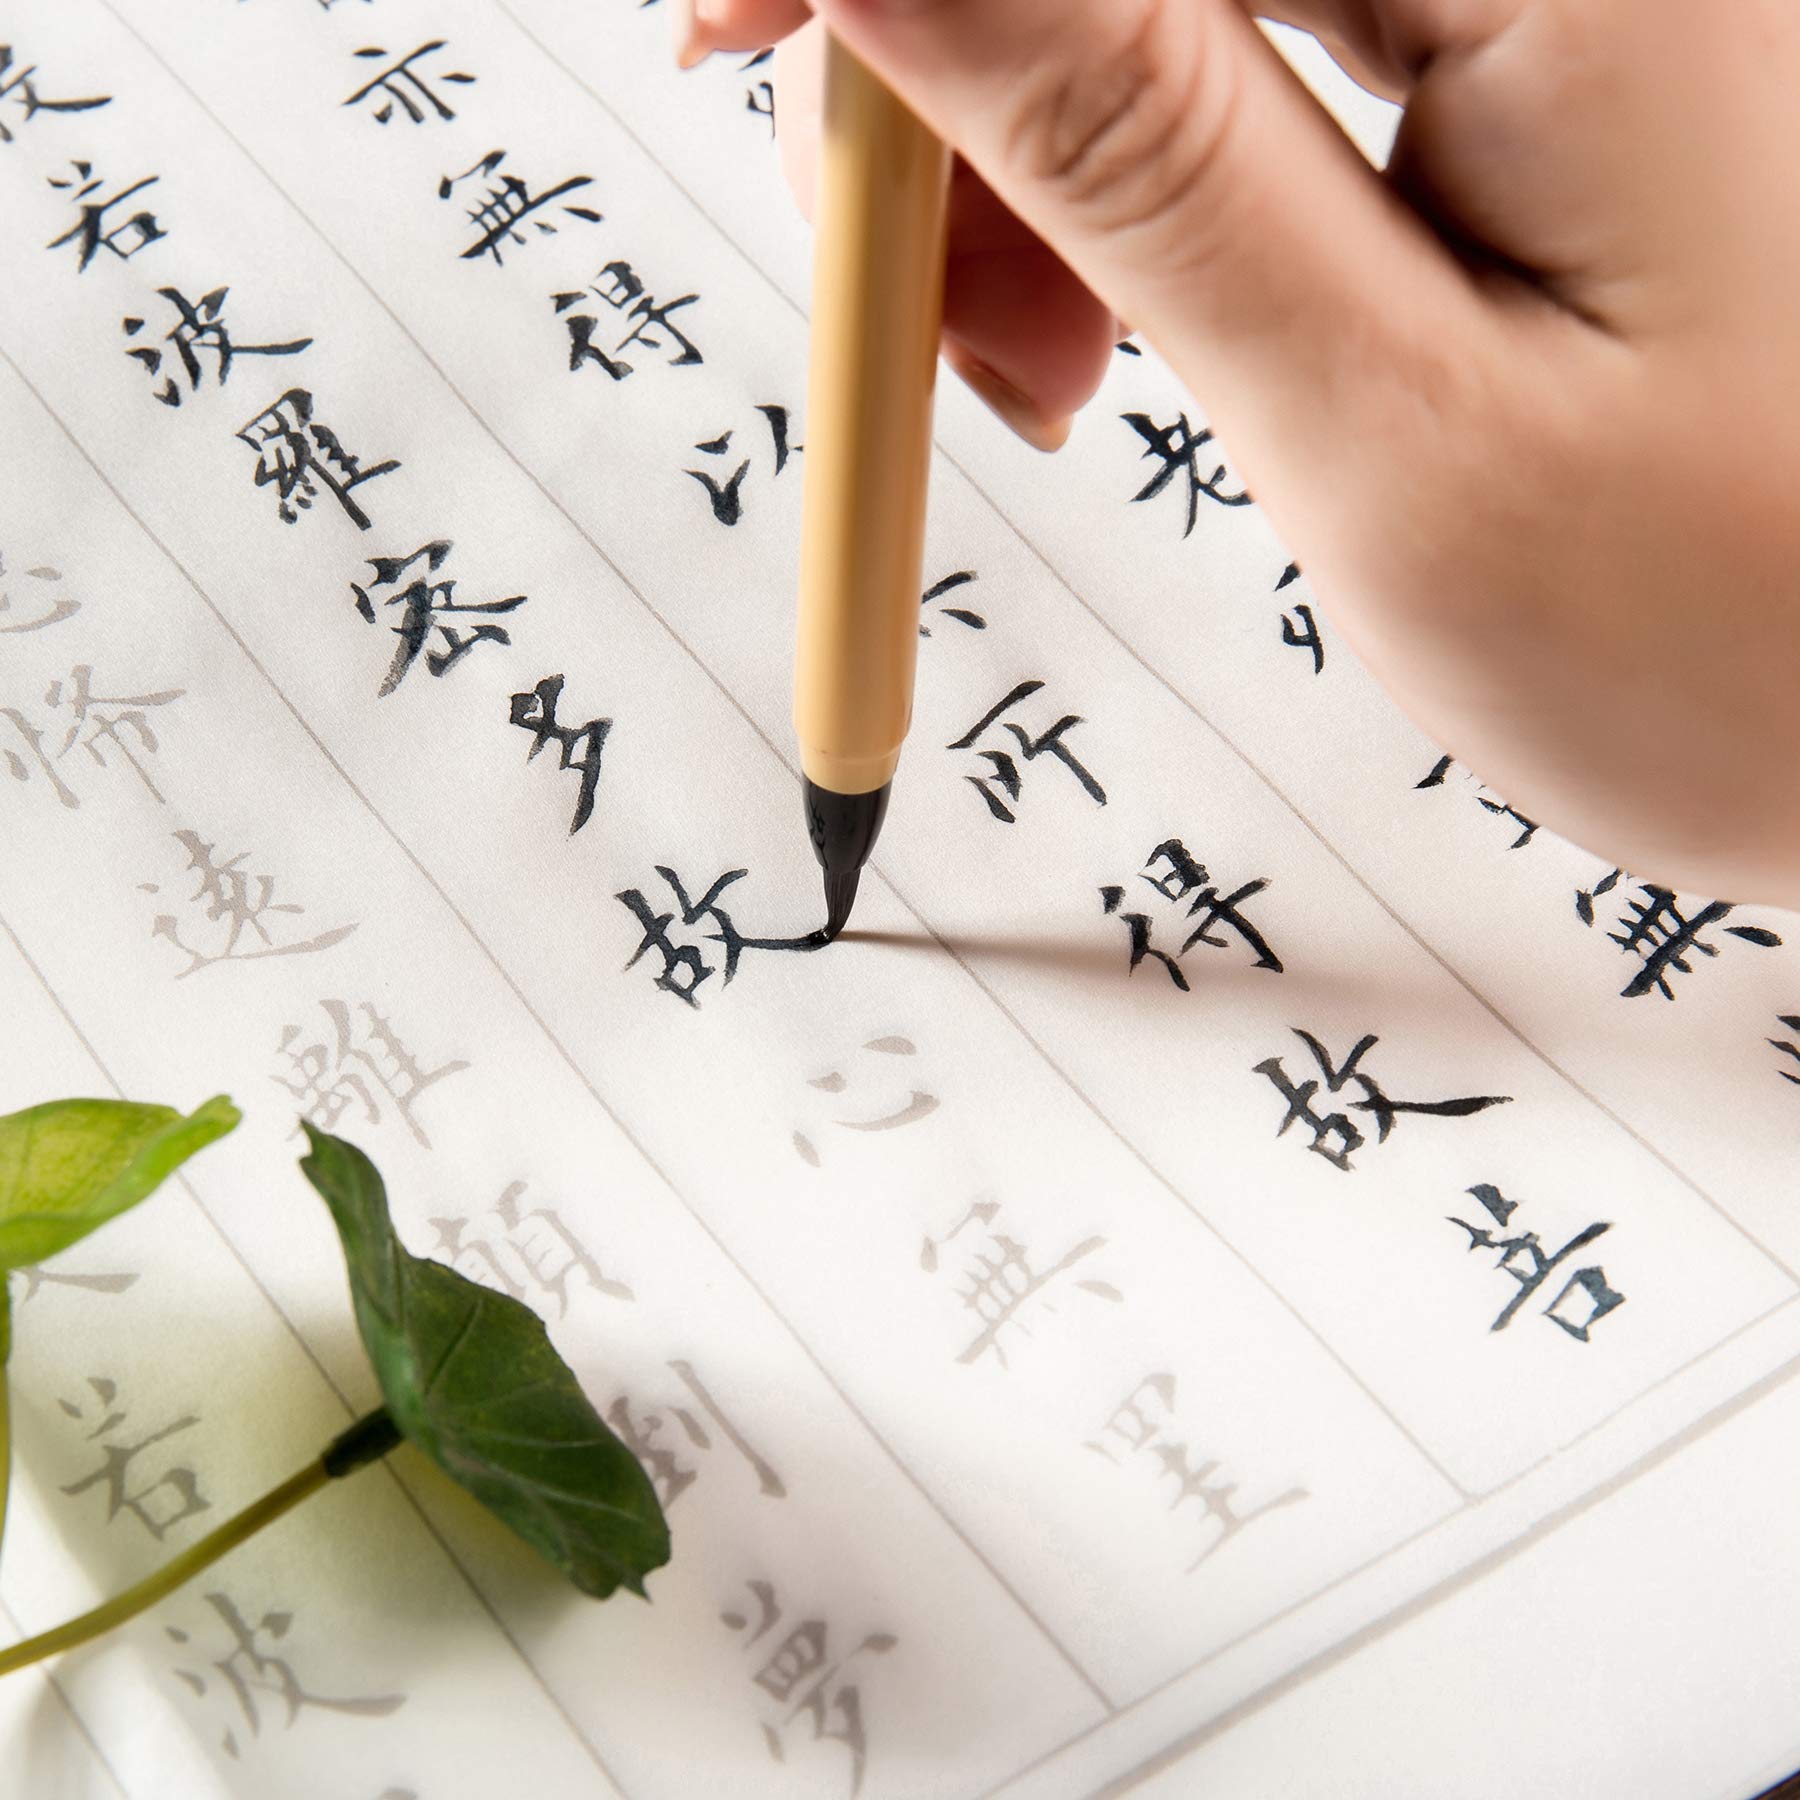 老無
亦無得以所得故菩
般若波羅蜜多故心無罣
怖遠離顛倒夢
若波